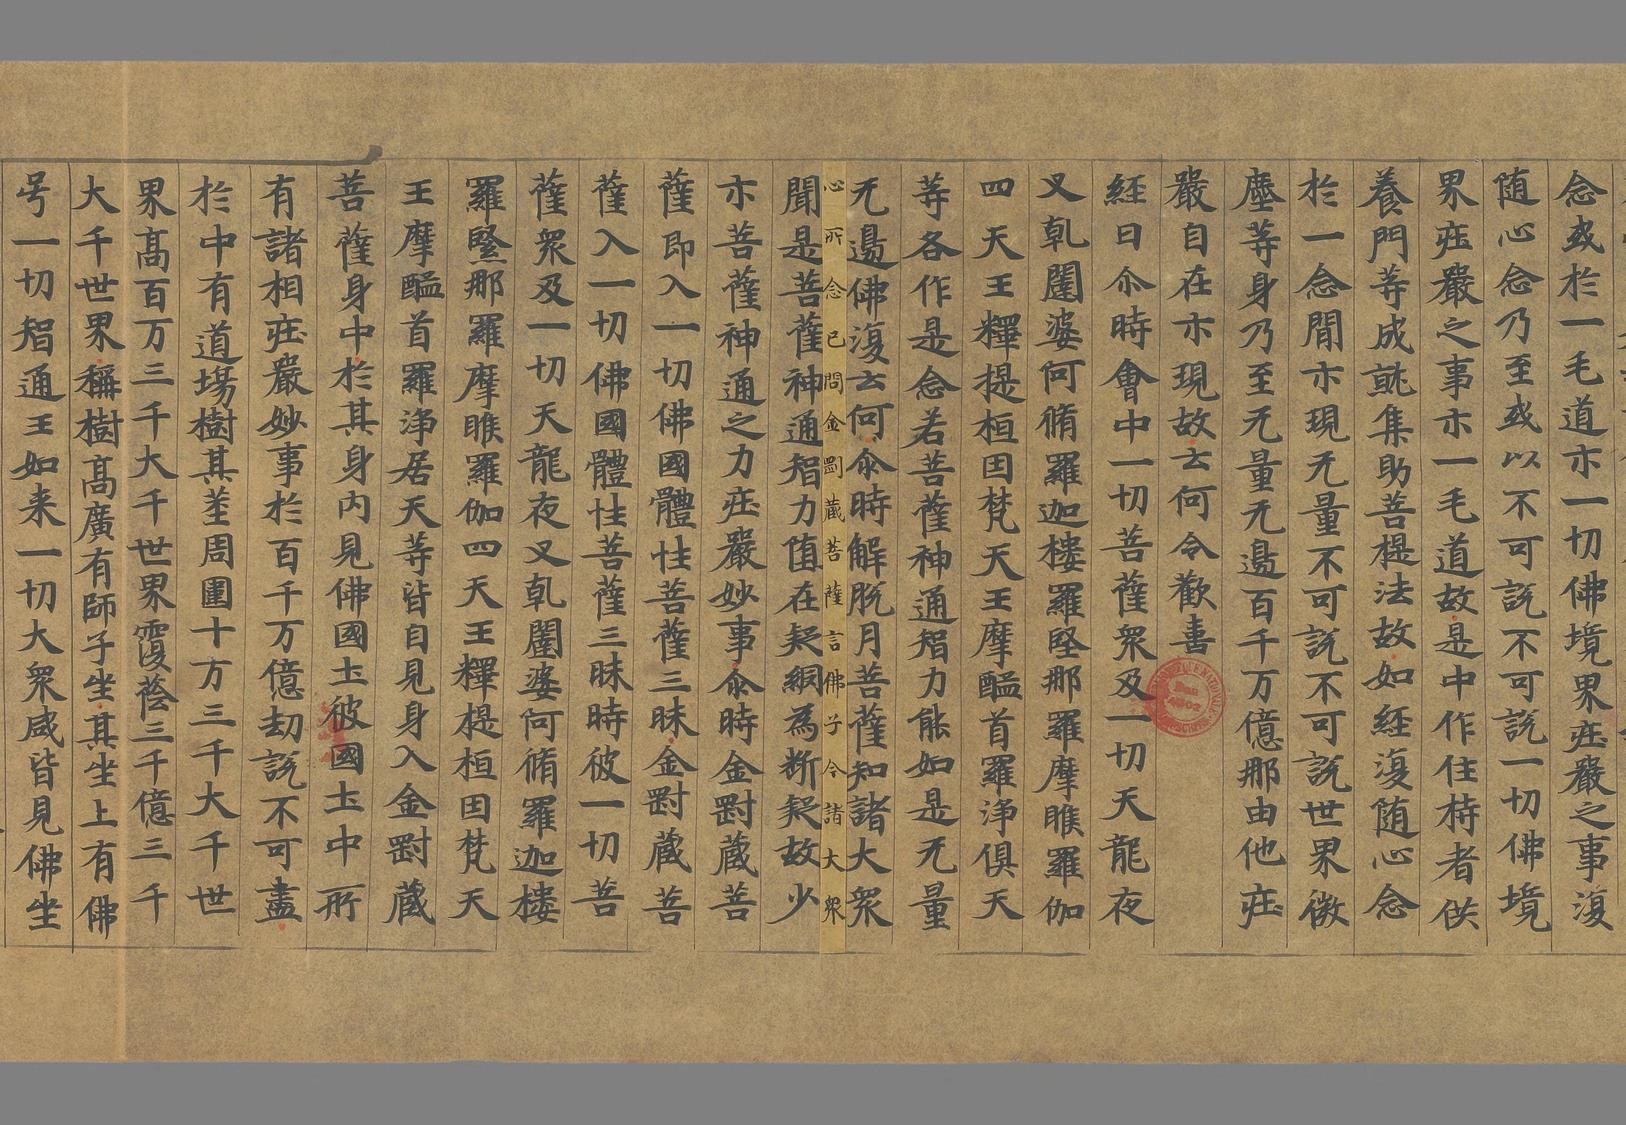 念或於一毛道亦一切佛境界庄嚴之事復
随心念乃至或以不可說不可說一切佛境
界庄嚴之事亦一毛道故是中作住持者供
養門等成就集助菩提法故如經復随心念
於一念間亦現无量不可說不可說世界微
塵等身乃至无量无邊百千万億那由他庄
嚴自在亦現故云何令歡喜
經曰尒時會中一切菩薩衆及一切天龍夜
叉乹闥婆阿脩羅迦樓羅堅那羅摩睺羅伽
四天王釋提桓因梵天王摩醯首羅浄俱天
等各作是念若菩薩神通智力能如是无量
无邊佛復云何尒時解脱月菩薩知諸大衆
心所念已問金剛蔵菩薩言佛子今諸大衆
聞是菩薩神通智力堕在疑網為断疑故少
亦菩薩神通之力庄嚴妙事尒時金剛蔵菩
薩即入一切佛國體性菩薩三昧金剛蔵菩
薩入一切佛國體性菩薩三昧時彼一切菩
薩衆及一切天龍夜叉乹闥婆阿脩羅迦樓
羅緊那羅摩睺羅伽四天王釋提桓因梵天
王摩醯首羅浄居天等皆自見身入金剛蔵
菩薩身中於其身内見佛國土彼國土中所
有諸相庄嚴妙事於百千万億劫說不可盡
於中有道場樹其莖周圍十方三千大千世
界高百万三千大千世界覆蔭三千億三千
大千世界稱樹高廣有師子坐其坐上有佛
号一切智通王如来一切大衆咸皆見佛坐